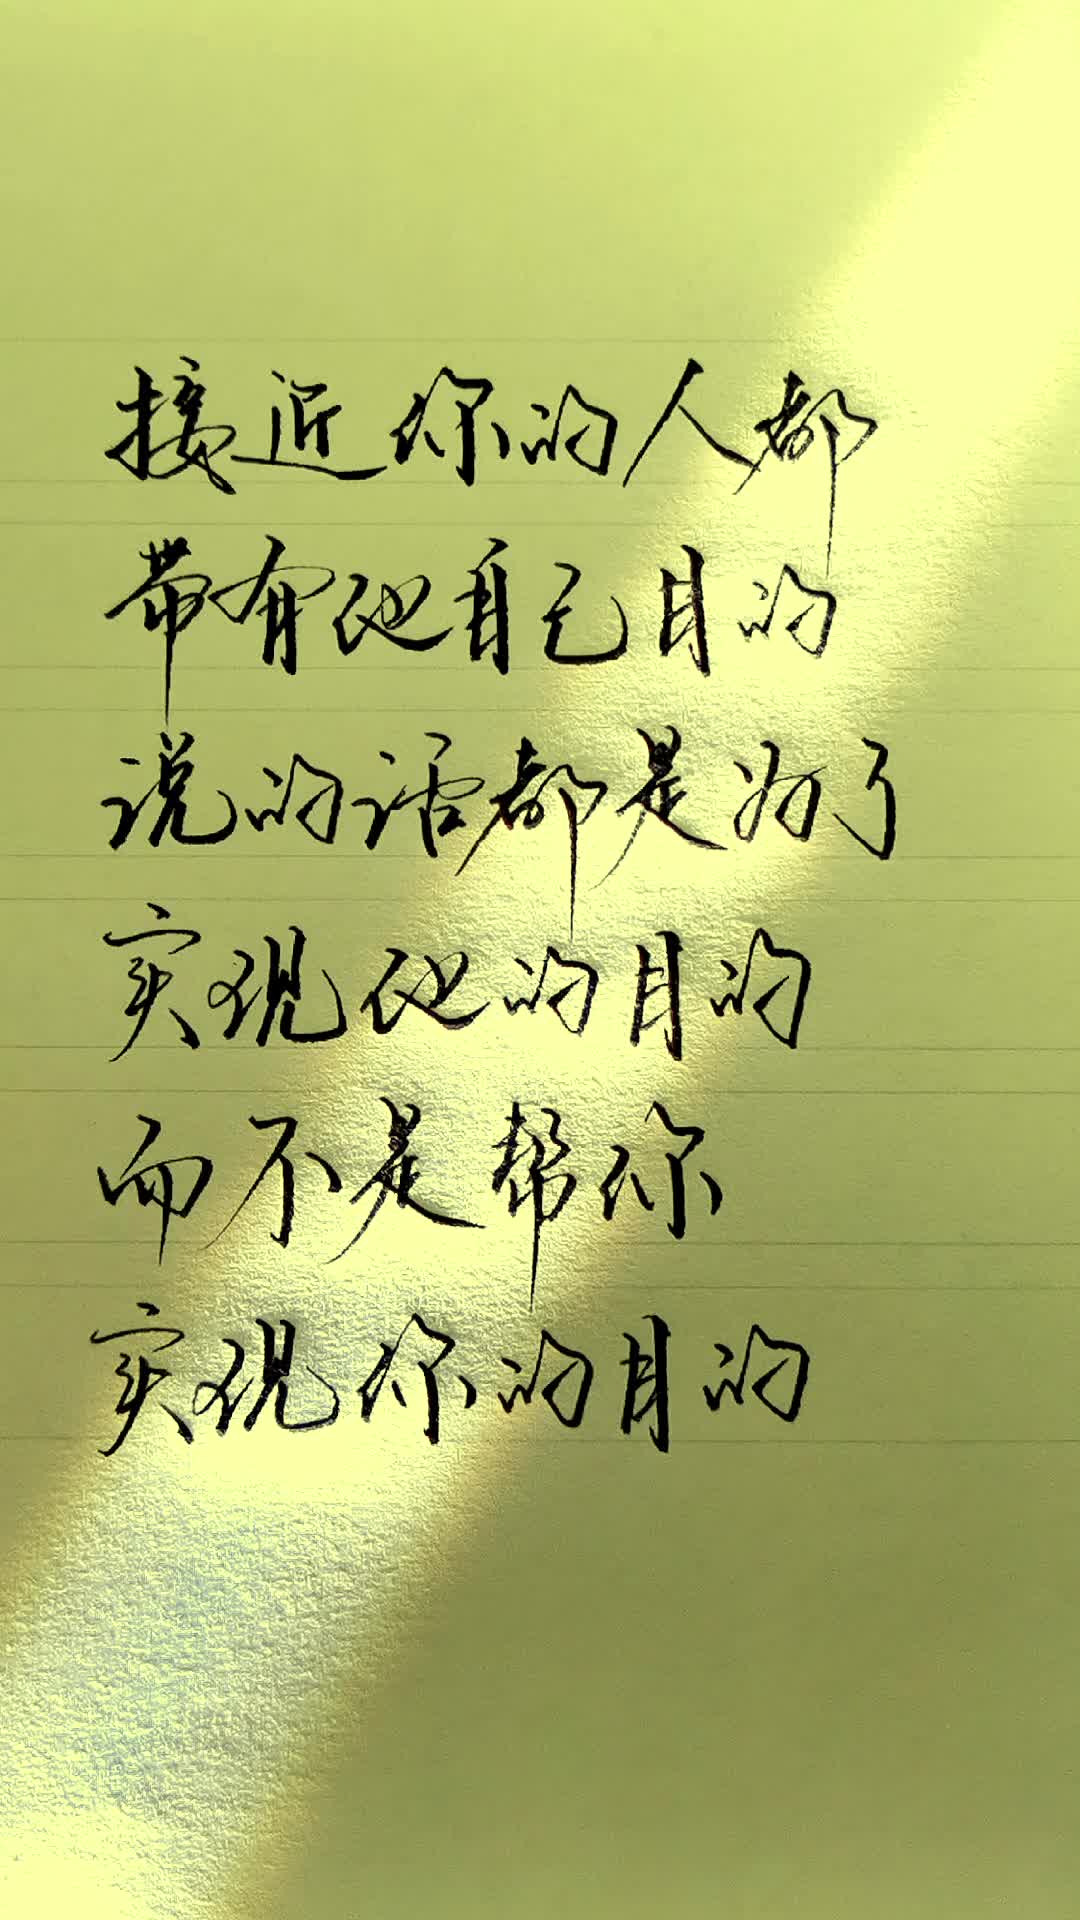 接近你的人都
带有他自己目的
说的话都是为了
实现他的目的
而不是帮你
实现你的目的